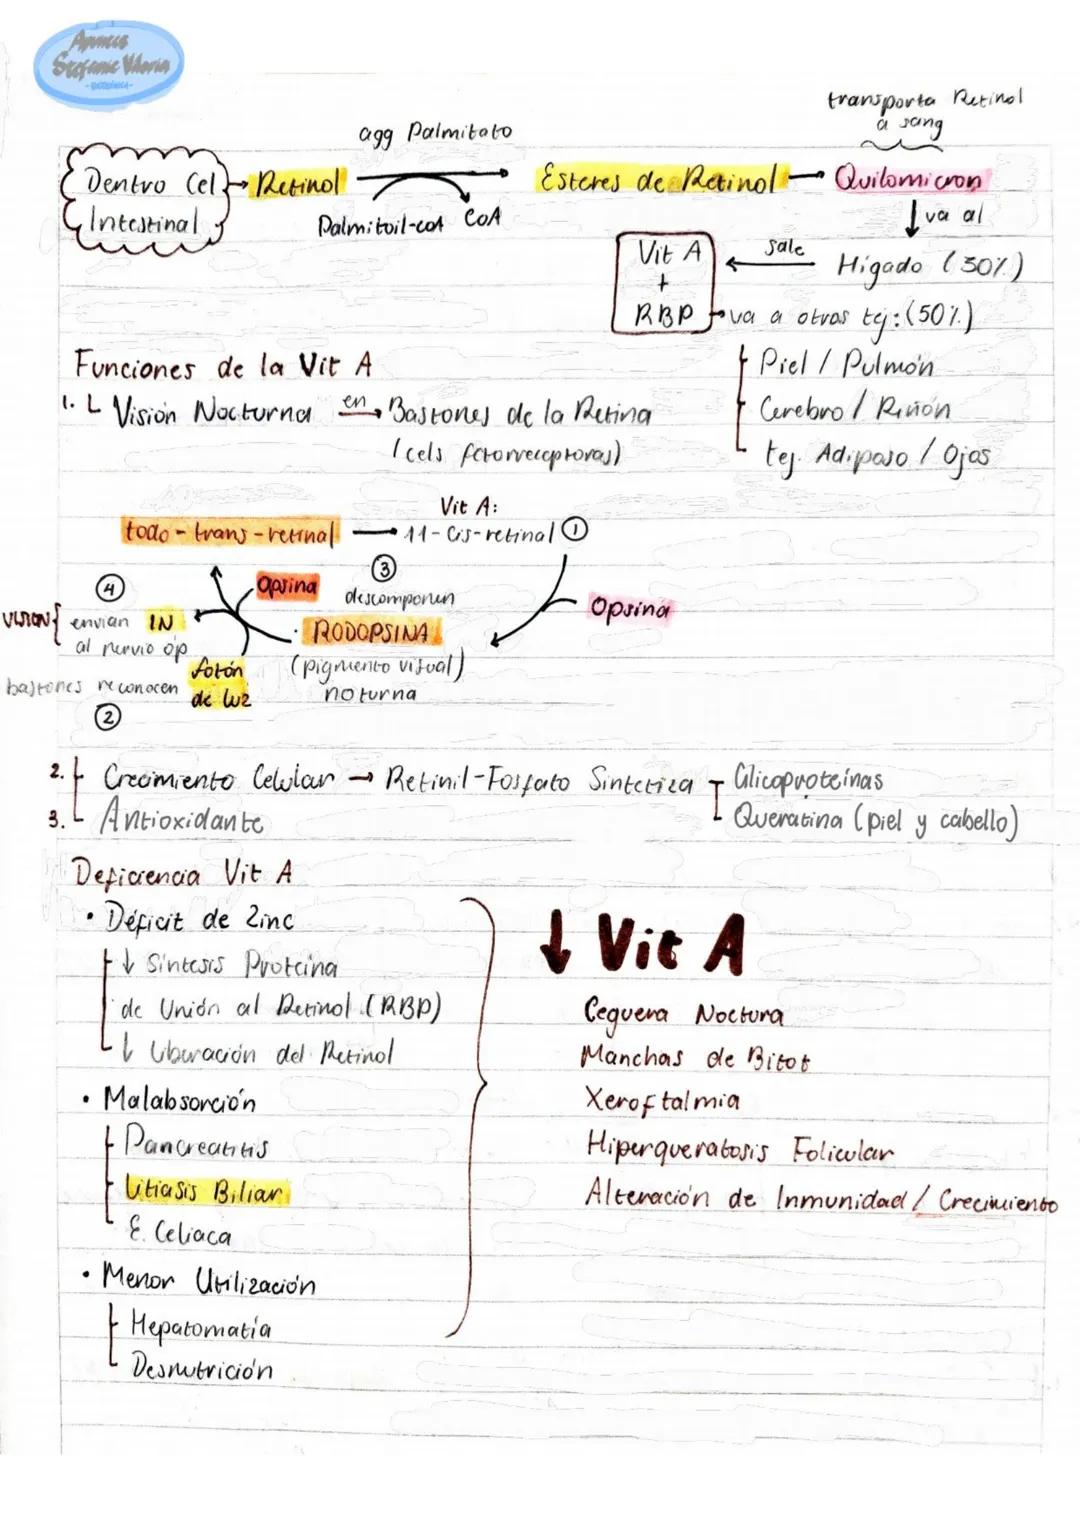 Apuntes
Stefanie Viloria
transporta Retinol
a sang
agg Palmitato
Dentro Cel → Retinol → Esteres de Retinol → Quilomicron
Intestinal
Palmitoil-coA CoA
va al
Vit A ← sale Hígado (30%)
+
RBP → va a otros tej: (50%)
Funciones de la Vit A
Piel / Pulmón
1. Visión Nocturna en → Bastones de la Retina
Cerebro / Riñón
(cels fotorreceptoras)
tej. Adiposo / Ojos
Vit A:
todo-trans-retinal → 11-Cis-retinal ①
④ Opsina ③
descomponen
Opsina
VISION { envian IN
RODOPSINA
al nervio óp
fotón (pigmento visual)
bastones reconocen de luz noturna
②
2. Crecimiento Celular → Retinil-Fosfato Sintetiza Glicoproteínas
3. Antioxidante Queratina (piel y cabello)
Deficiencia Vit A
• Déficit de Zinc
↓ Vit A
↓ Síntesis Proteína
de Unión al Retinol (RBP)
Ceguera Noctura
↓ Liberación del Retinol
Manchas de Bitot
• Malabsorción
Xeroftalmia
Pancreatitis
Hiperqueratosis Folicular
Litiasis Biliar
Alteración de Inmunidad / Crecimiento
E. Celiaca
• Menor Utilización
Hepatomatía
Desnutrición